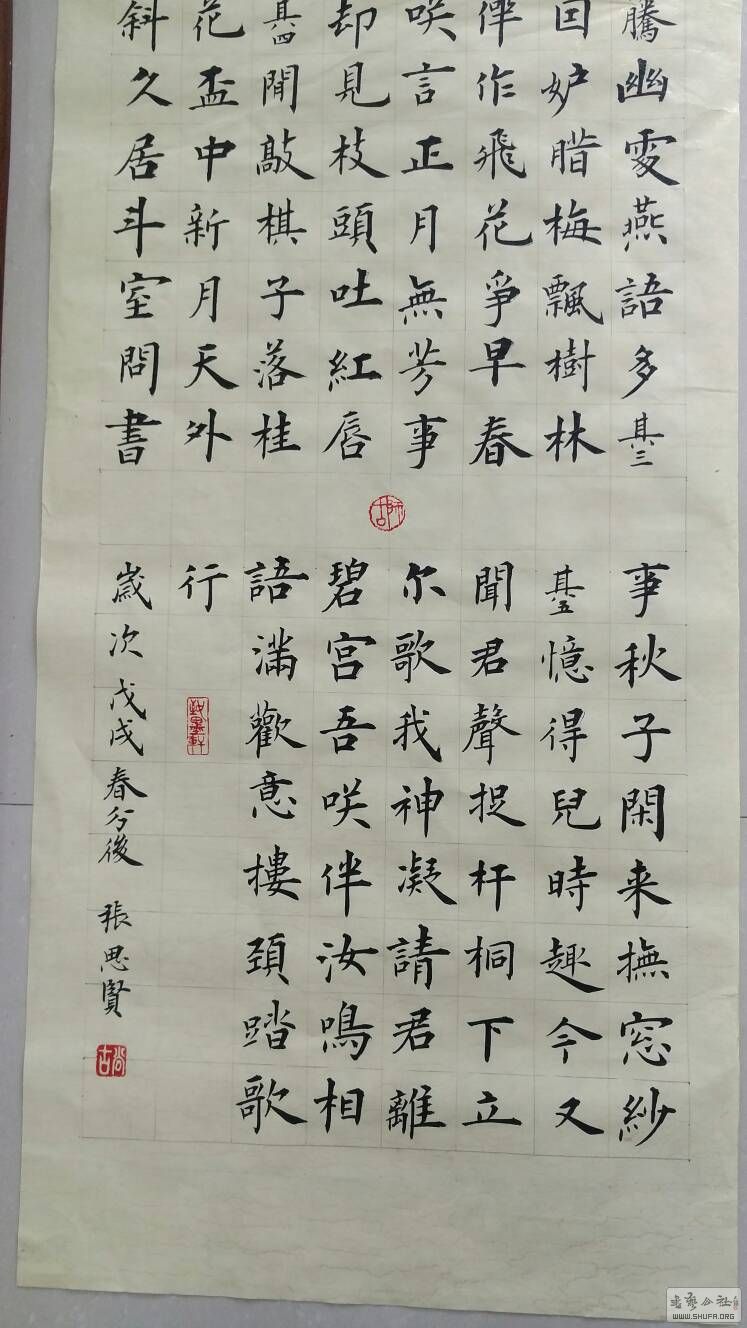 騰幽雯燕語多其三
囙妒腊梅飄樹林
作飛花爭早春
咲言正月無芳事
却見枝頭吐紅唇
其四聞敲棋子落桂
花盃中新月天外
斜久居斗室問書
師古
事秋子閑来撫窓紗
其五憶得兒時趣今又
聞君聲捉杆桐下立
尔歌我神凝請君離
碧宮吾咲伴汝鳴相
語滿歡意樓頚踏歌
行
歲次戊戌春分後 張思賢
尚古
書藝公社
WWW.SHUFA.ORG